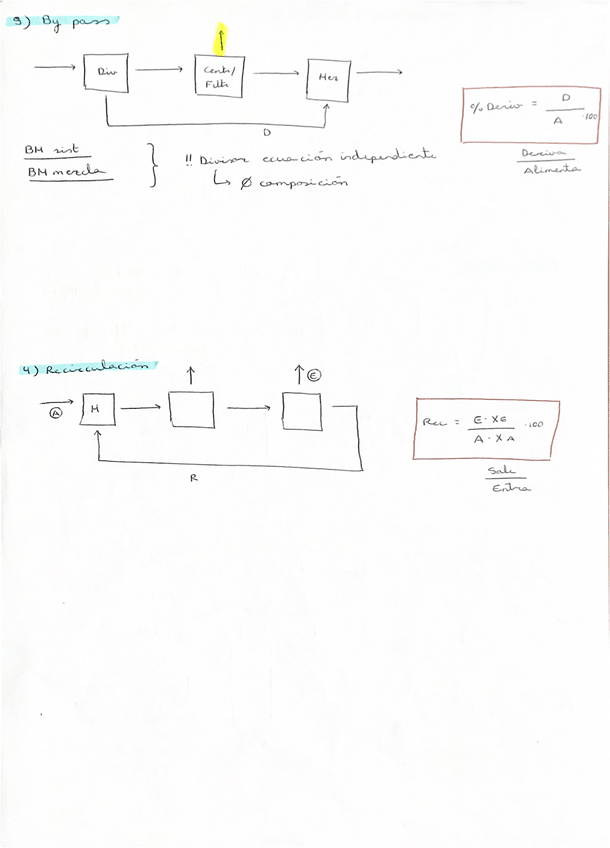 3) By pass
Div
Centr/
Filtr
Mez
D
% Deriv = D / A · 100
Deriva
Alimenta
BM sist
BM mezcla
!! Divisor ecuación independiente
↳ Ø composición
4) Recirculación
A
M
E
R
Rec = E · XE / A · XA · 100
Sale
Entra